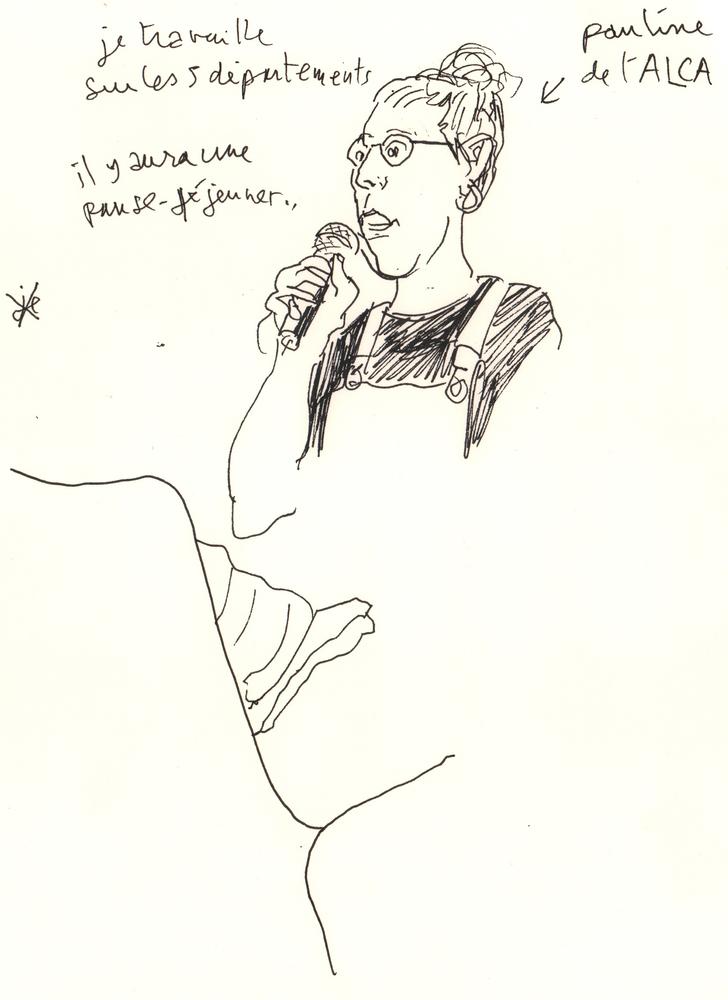 je travaille
sur les 5 départements
pauline
de l'ALCA
il y aura une
pause-déjeuner..
je